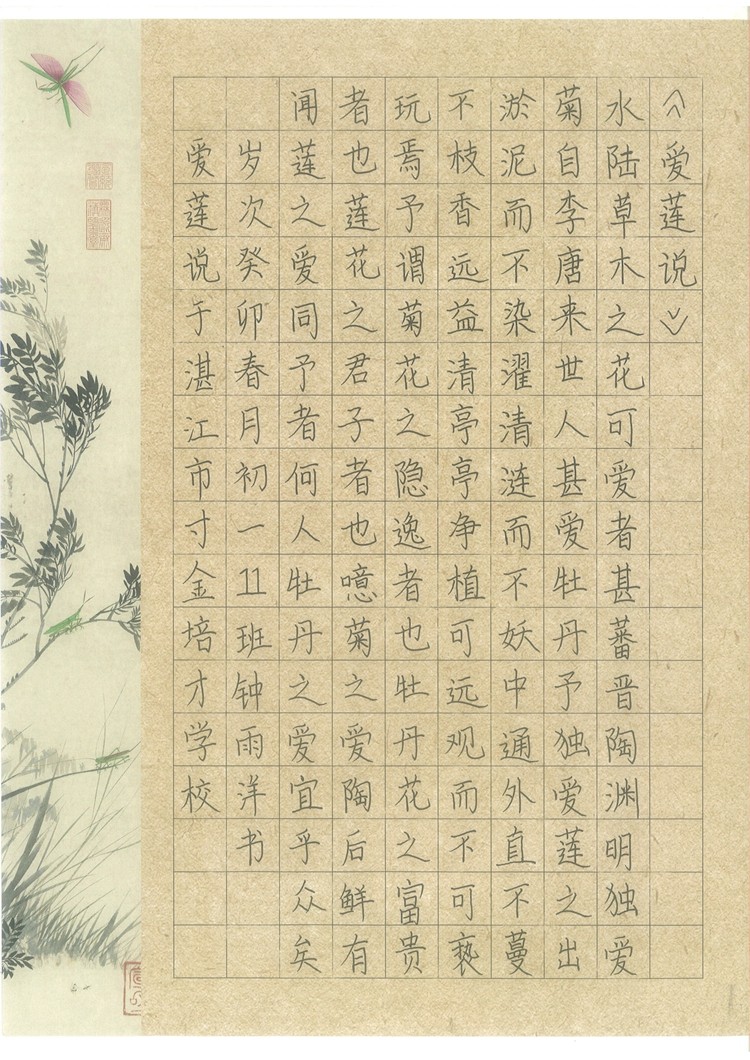 《爱莲说》
水陆草木之花可爱者甚蕃晋陶渊明独爱
菊自李唐来世人甚爱牡丹予独爱莲之出
淤泥而不染濯清涟而不妖中通外直不蔓
不枝香远益清亭亭净植可远观而不可亵
玩焉予谓菊花之隐逸者也牡丹花之富贵
者也莲花之君子者也噫菊之爱陶后鲜有
闻莲之爱同予者何人牡丹之爱宜乎众矣
岁次癸卯春月初一11班钟雨洋书
爱莲说于湛江市寸金培才学校